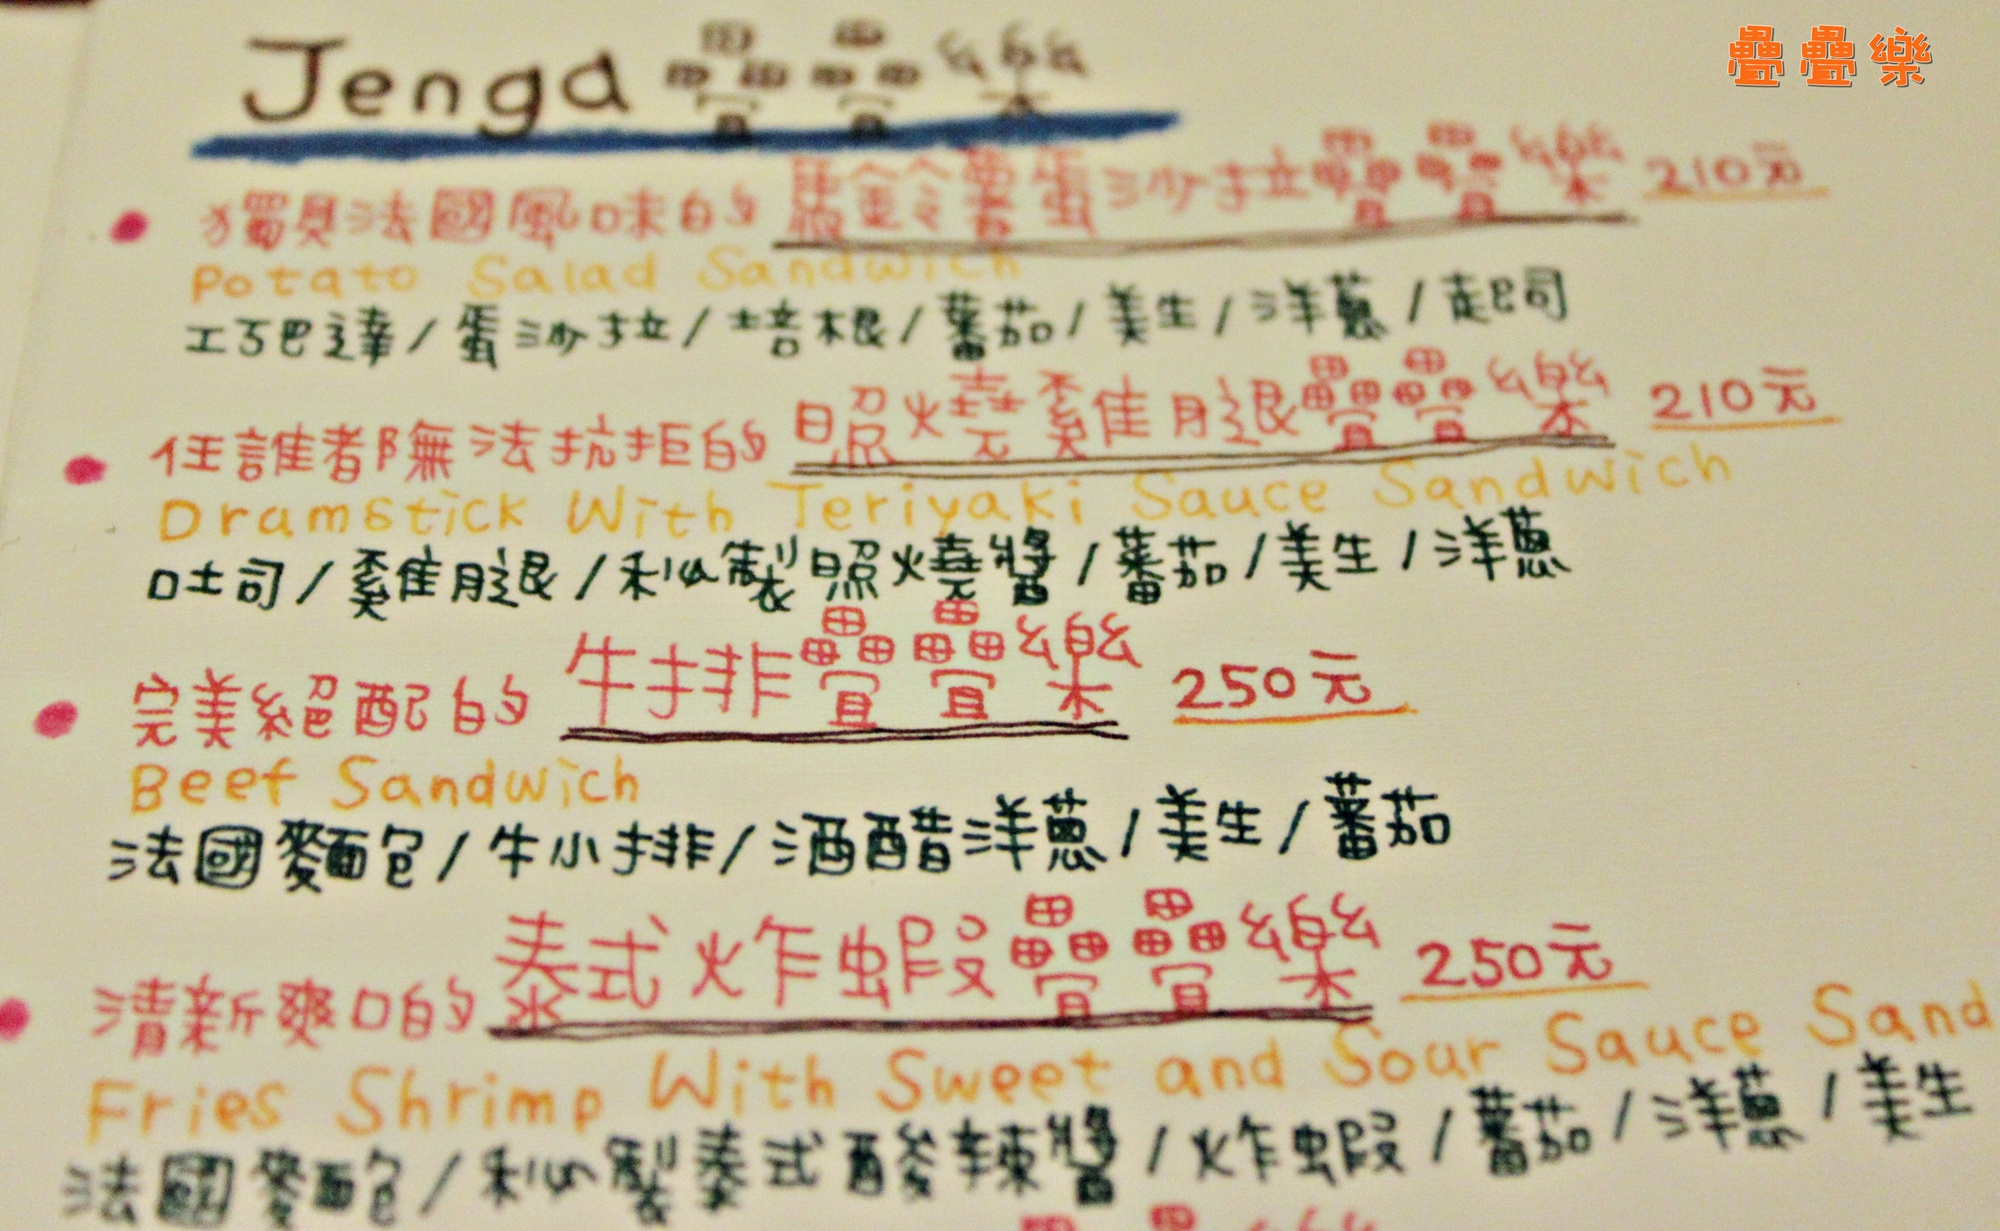 疊疊樂
Jenga 疊疊樂
獨具法國風味的 馬鈴薯蛋沙拉疊疊樂 210元
Potato Salad Sandwich
工巧巴達/蛋沙拉/培根/蕃茄/美生/洋蔥/起司
任誰都無法抗拒的 照燒雞腿疊疊樂 210元
Dramstick With Teriyaki Sauce Sandwich
吐司/雞腿/私製照燒醬/蕃茄/美生/洋蔥
完美絕配的 牛排疊疊樂 250元
Beef Sandwich
法國麵包/牛小排/酒醋洋蔥/美生/蕃茄
清新爽口的 泰式炸蝦疊疊樂 250元
Fries Shrimp With Sweet and Sour Sauce Sand
法國麵包/私製泰式酸辣醬/炸蝦/蕃茄/洋蔥/美生